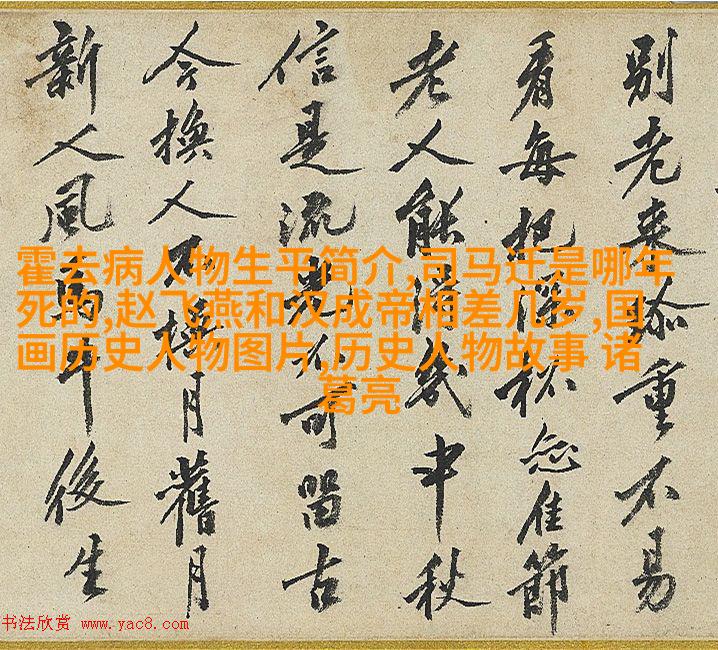 別老来添重不易
看每把深杯佳節
老人能得幾中秋
信是流光不可留古
今換人不換月舊月
新人風馬牛後生
霍去病人物生平简介,司马迁是哪年
死的,赵飞燕和汉成帝相差几岁,国
画历史人物图片,历史人物故事 诸
葛亮
书法欣赏 www.yac8.com